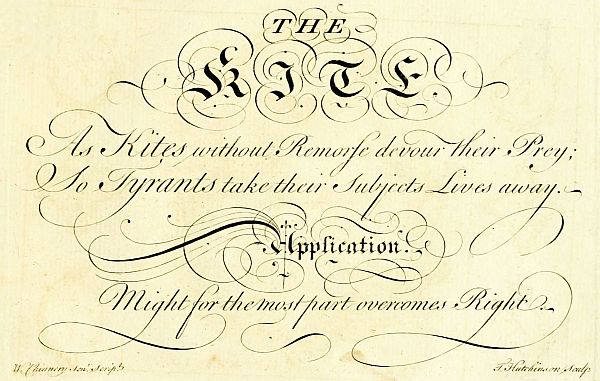 THE
KITE.
As Kites without Remorſe devour their Prey;
So Tyrants take their Subjects Lives away.
Application.
Might for the most part overcomes Right.
W. Chinnery Senr. Scripst. T. Hutchinson Sculp